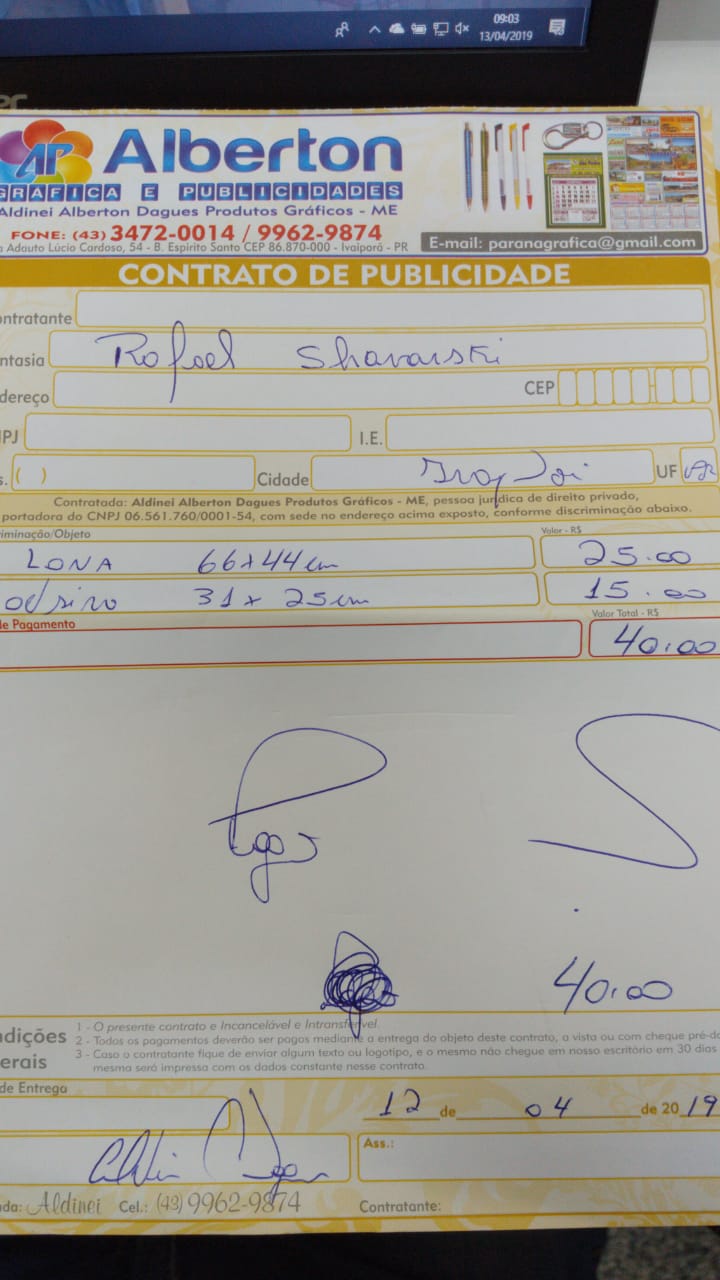 09:03
13/04/2019
AP Alberton
GRÁFICA E PUBLICIDADES
Aldinei Alberton Dagues Produtos Gráficos - ME
FONE: (43) 3472-0014 / 9962-9874
a Adauto Lúcio Cardoso, 54 - B. Espirito Santo CEP 86.870-000 - Ivaiporã - PR
E-mail: paranagrafica@gmail.com
CONTRATO DE PUBLICIDADE
ontratante
ntasia Rafael
dereço CEP
PJ I.E.
s. ( ) Cidade UF
Contratada: Aldinei Alberton Dagues Produtos Gráficos - ME, pessoa jurídica de direito privado,
portadora do CNPJ 06.561.760/0001-54, com sede no endereço acima exposto, conforme discriminação abaixo.
riminação/Objeto Valor - R$
LONA 66x44cm 25.00
31x25cm 15.00
de Pagamento Valor Total - R$
40.00
40.00
ndições
erais
1 - O presente contrato e Incancelável e Intransferível.
2 - Todos os pagamentos deverão ser pagos mediante a entrega do objeto deste contrato, a vista ou com cheque pré-da
3 - Caso o contratante fique de enviar algum texto ou logotipo, e o mesmo não chegue em nosso escritório em 30 dias
mesma será impressa com os dados constante nesse contrato.
de Entrega
12 de 04 de 2019
Ass.:
nda: Aldinei Cel.: (43) 9962-9874 Contratante: